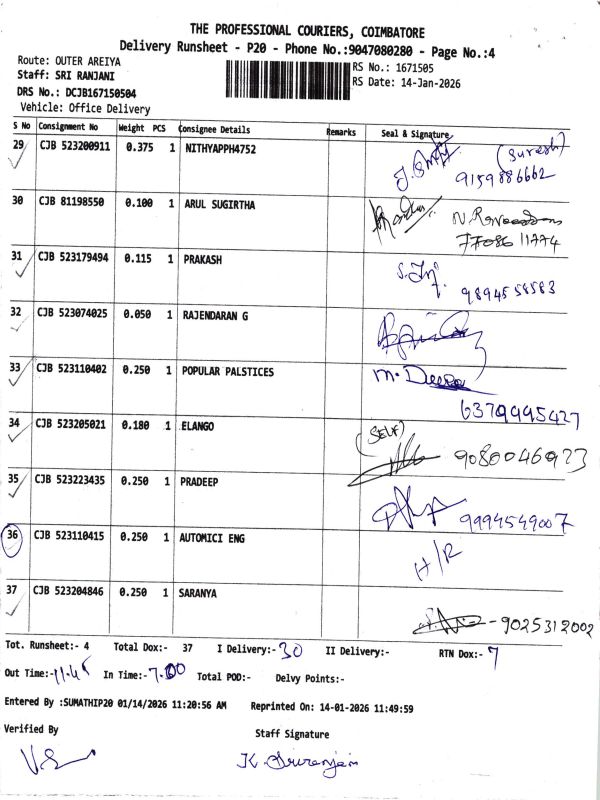 THE PROFESSIONAL COURIERS, COIMBATORE
Delivery Runsheet - P20 - Phone No.:9047080280 - Page No.:4
Route: OUTER AREIYA
Staff: SRI RANJANI
DRS No.: DCJB167150504
Vehicle: Office Delivery
RS No.: 1671505
RS Date: 14-Jan-2026
S No Consignment No Weight PCS Consignee Details Remarks Seal & Signature
29 CJB 523200911 0.375 1 NITHYAPPH4752 (Suresh)
9159886662
30 CJB 81198550 0.100 1 ARUL SUGIRTHA
77086 11774
31 CJB 523179494 0.115 1 PRAKASH
9894558583
32 CJB 523074025 0.050 1 RAJENDARAN G
33 CJB 523110402 0.250 1 POPULAR PALSTICES M. Deepa
6379995427
34 CJB 523205021 0.180 1 ELANGO (SELF)
9080046923
35 CJB 523223435 0.250 1 PRADEEP
9994549007
36 CJB 523110415 0.250 1 AUTOMICI ENG H/R
37 CJB 523204846 0.250 1 SARANYA
- 9025312002
Tot. Runsheet:- 4 Total Dox:- 37 I Delivery:- 30 II Delivery:- RTN Dox:- 7
Out Time:- 11.45 In Time:- 7.00 Total POD:- Delvy Points:-
Entered By :SUMATHIP20 01/14/2026 11:20:56 AM Reprinted On: 14-01-2026 11:49:59
Verified By Staff Signature
K. Sriranjani